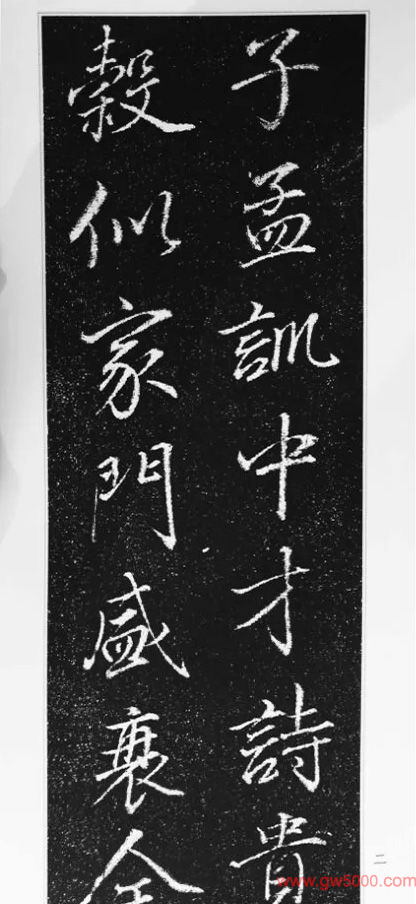 子孟訓中才詩貴
穀似家門盛衰全
二
www.gw5000.com